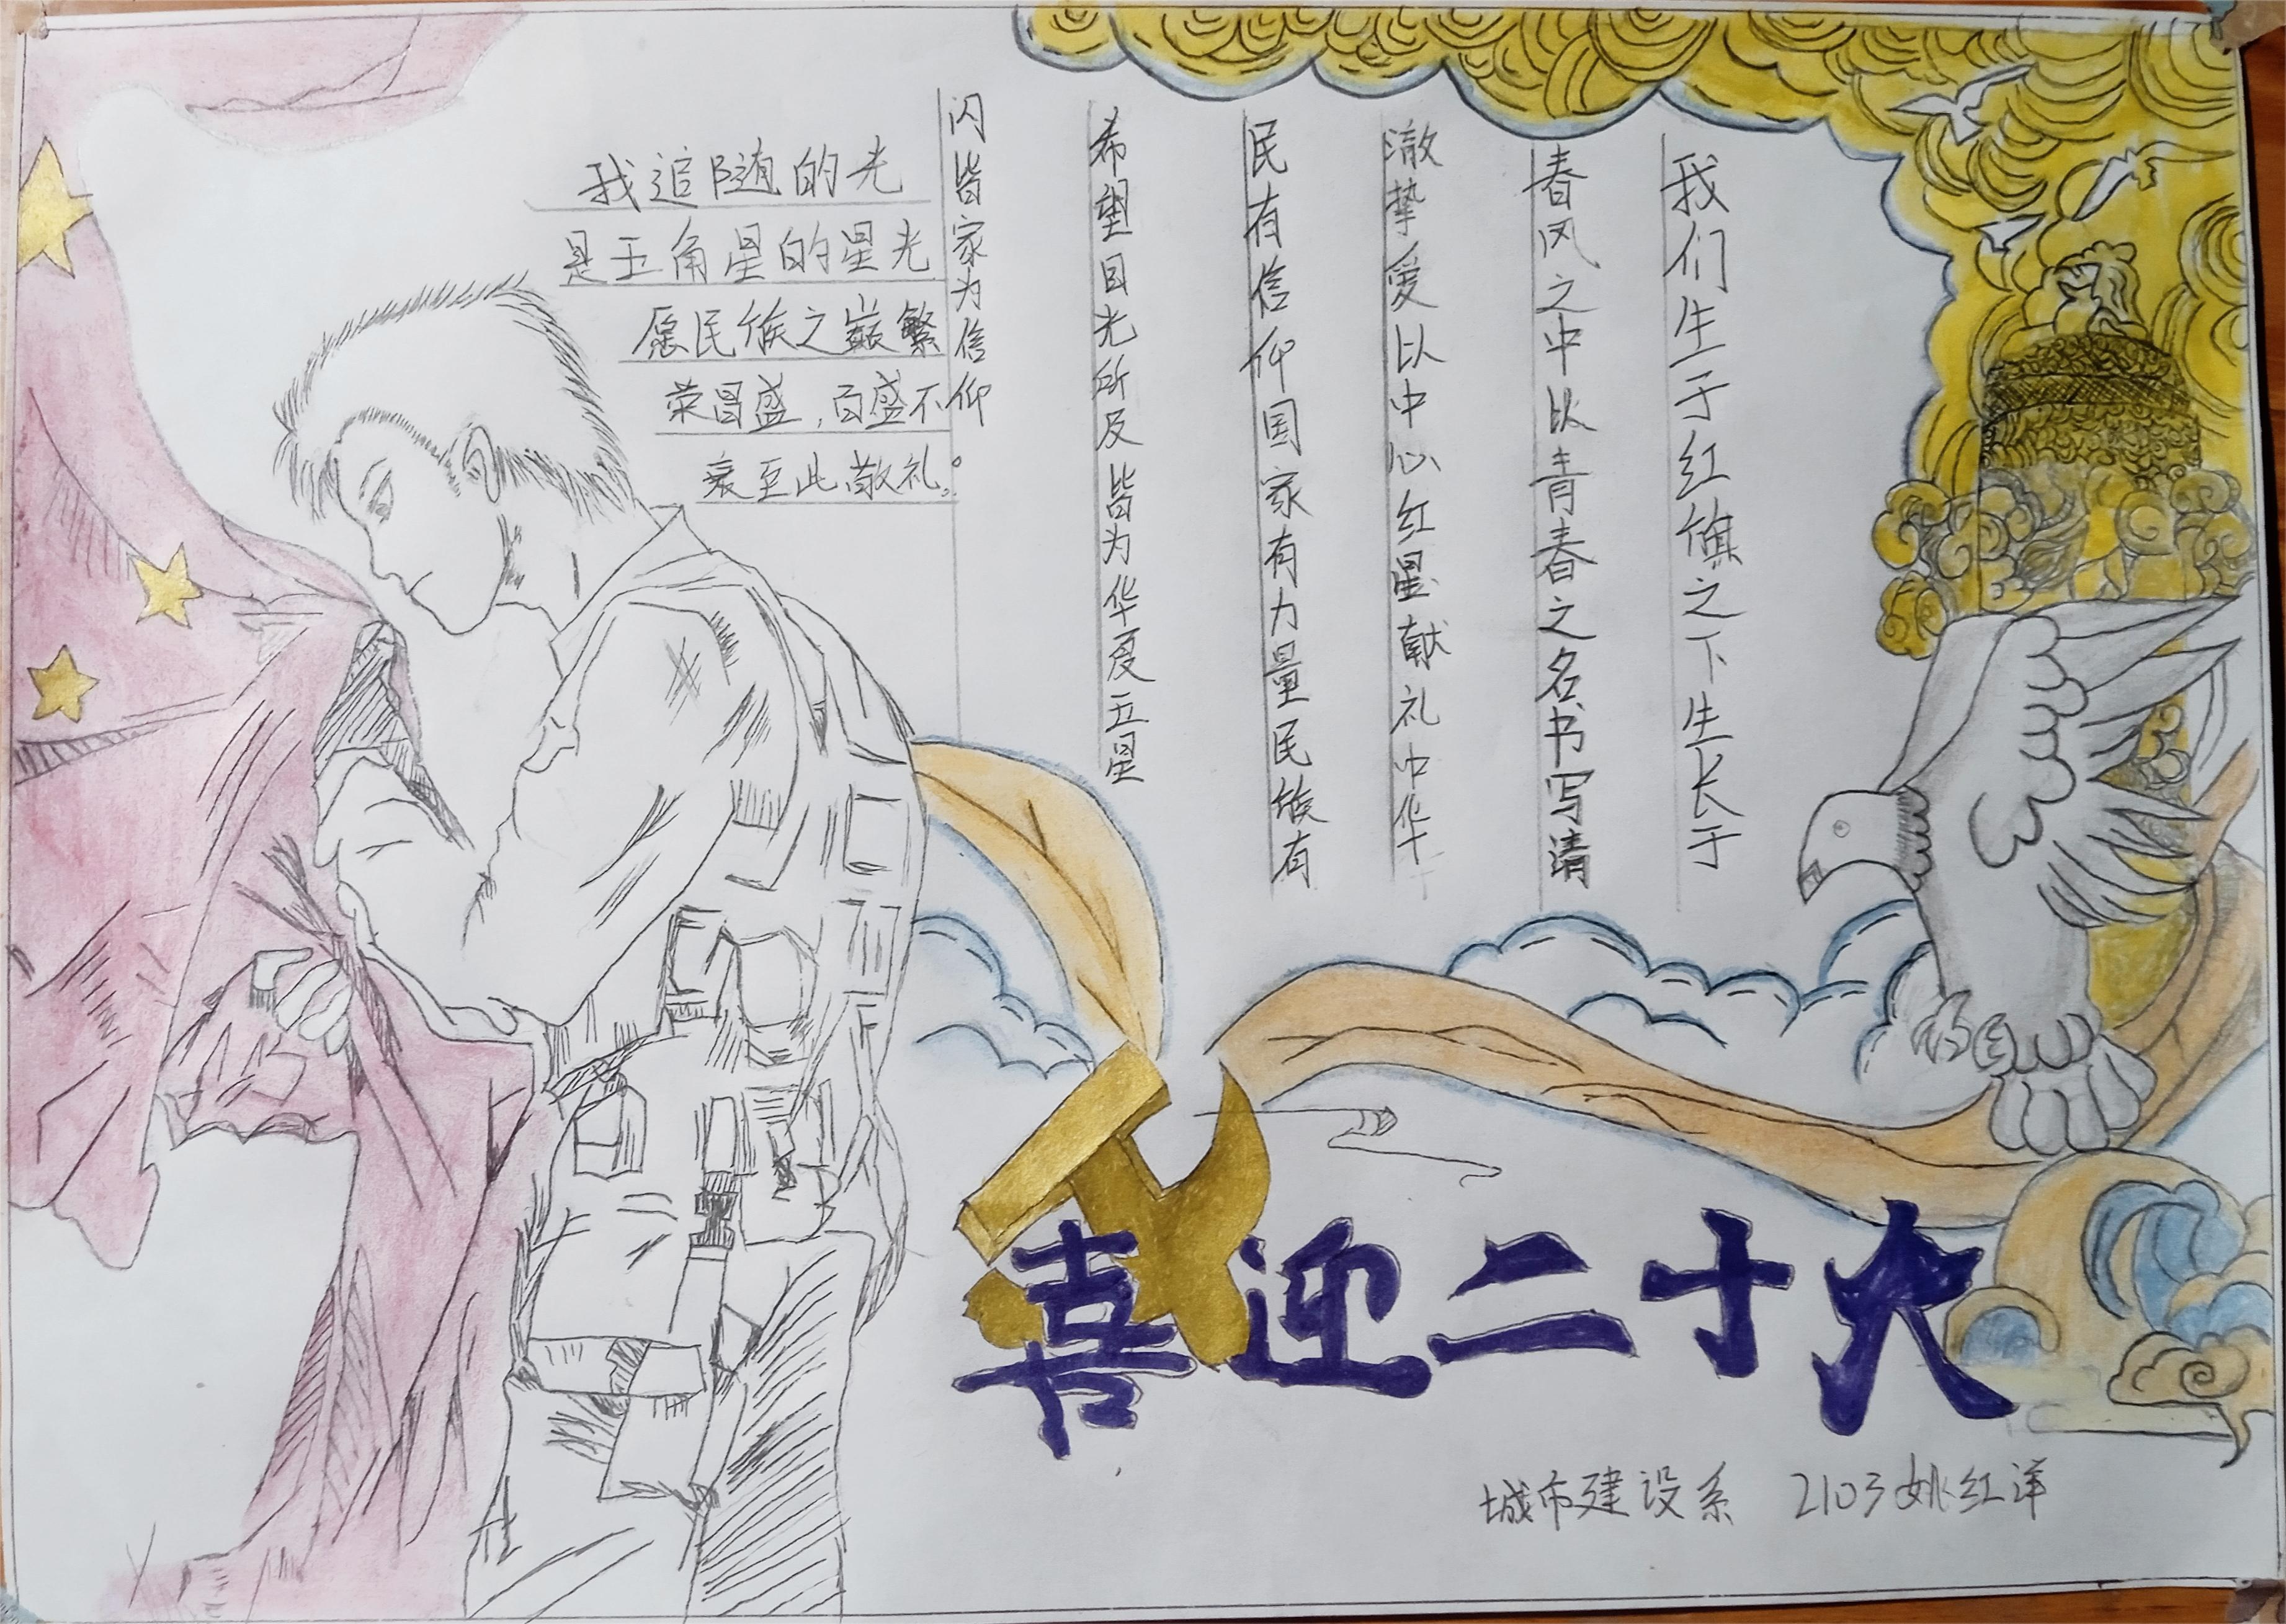 我追随的光
是五角星的星光
愿民族之巅繁
荣昌盛，百盛不
衰至此敬礼。
我们生于红旗之下生长于
春风之中以青春之名书写清
澈挚爱以中心红星献礼中华
民有信仰国家有力量民族有
希望目光所及皆为华夏五星
闪皆家为信仰。
喜迎二十大
城市建设系 2103姚红洋